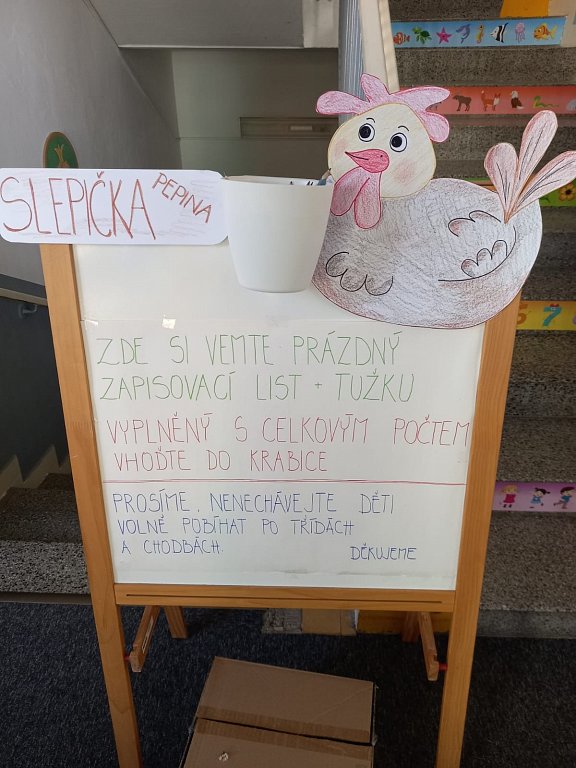 SLEPIČKA
PEPINA
ZDE SI VEMTE PRÁZDNÝ
ZAPISOVACÍ LIST + TUŽKU
VYPLNĚNÝ S CELKOVÝM POČTEM
VHOĎTE DO KRABICE
PROSÍME, NENECHÁVEJTE DĚTI
VOLNĚ POBÍHAT PO TŘÍDÁCH
A CHODBÁCH.
DĚKUJEME